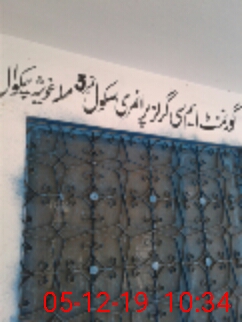 گورنمنٹ ایم سی گرلز پرائمری سکول نمبر 3 ملا غوثیہ
05-12-19 10:34